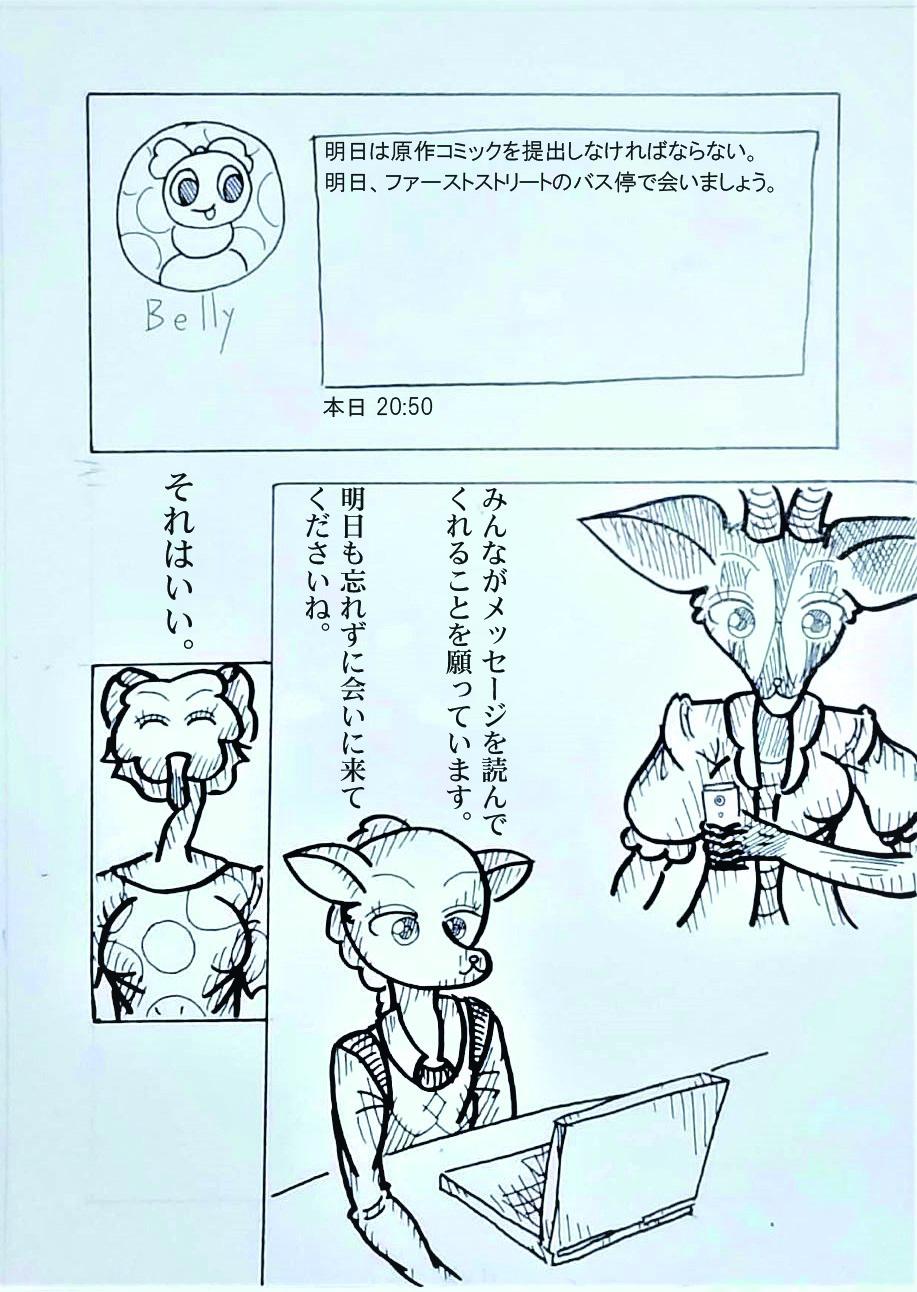 明日は原作コミックを提出しなければならない。
明日、ファーストストリートのバス停で会いましょう。
Belly
本日 20:50
みんながメッセージを読んで
くれることを願っています。
明日も忘れずに会いに来て
くださいね。
それはいい。